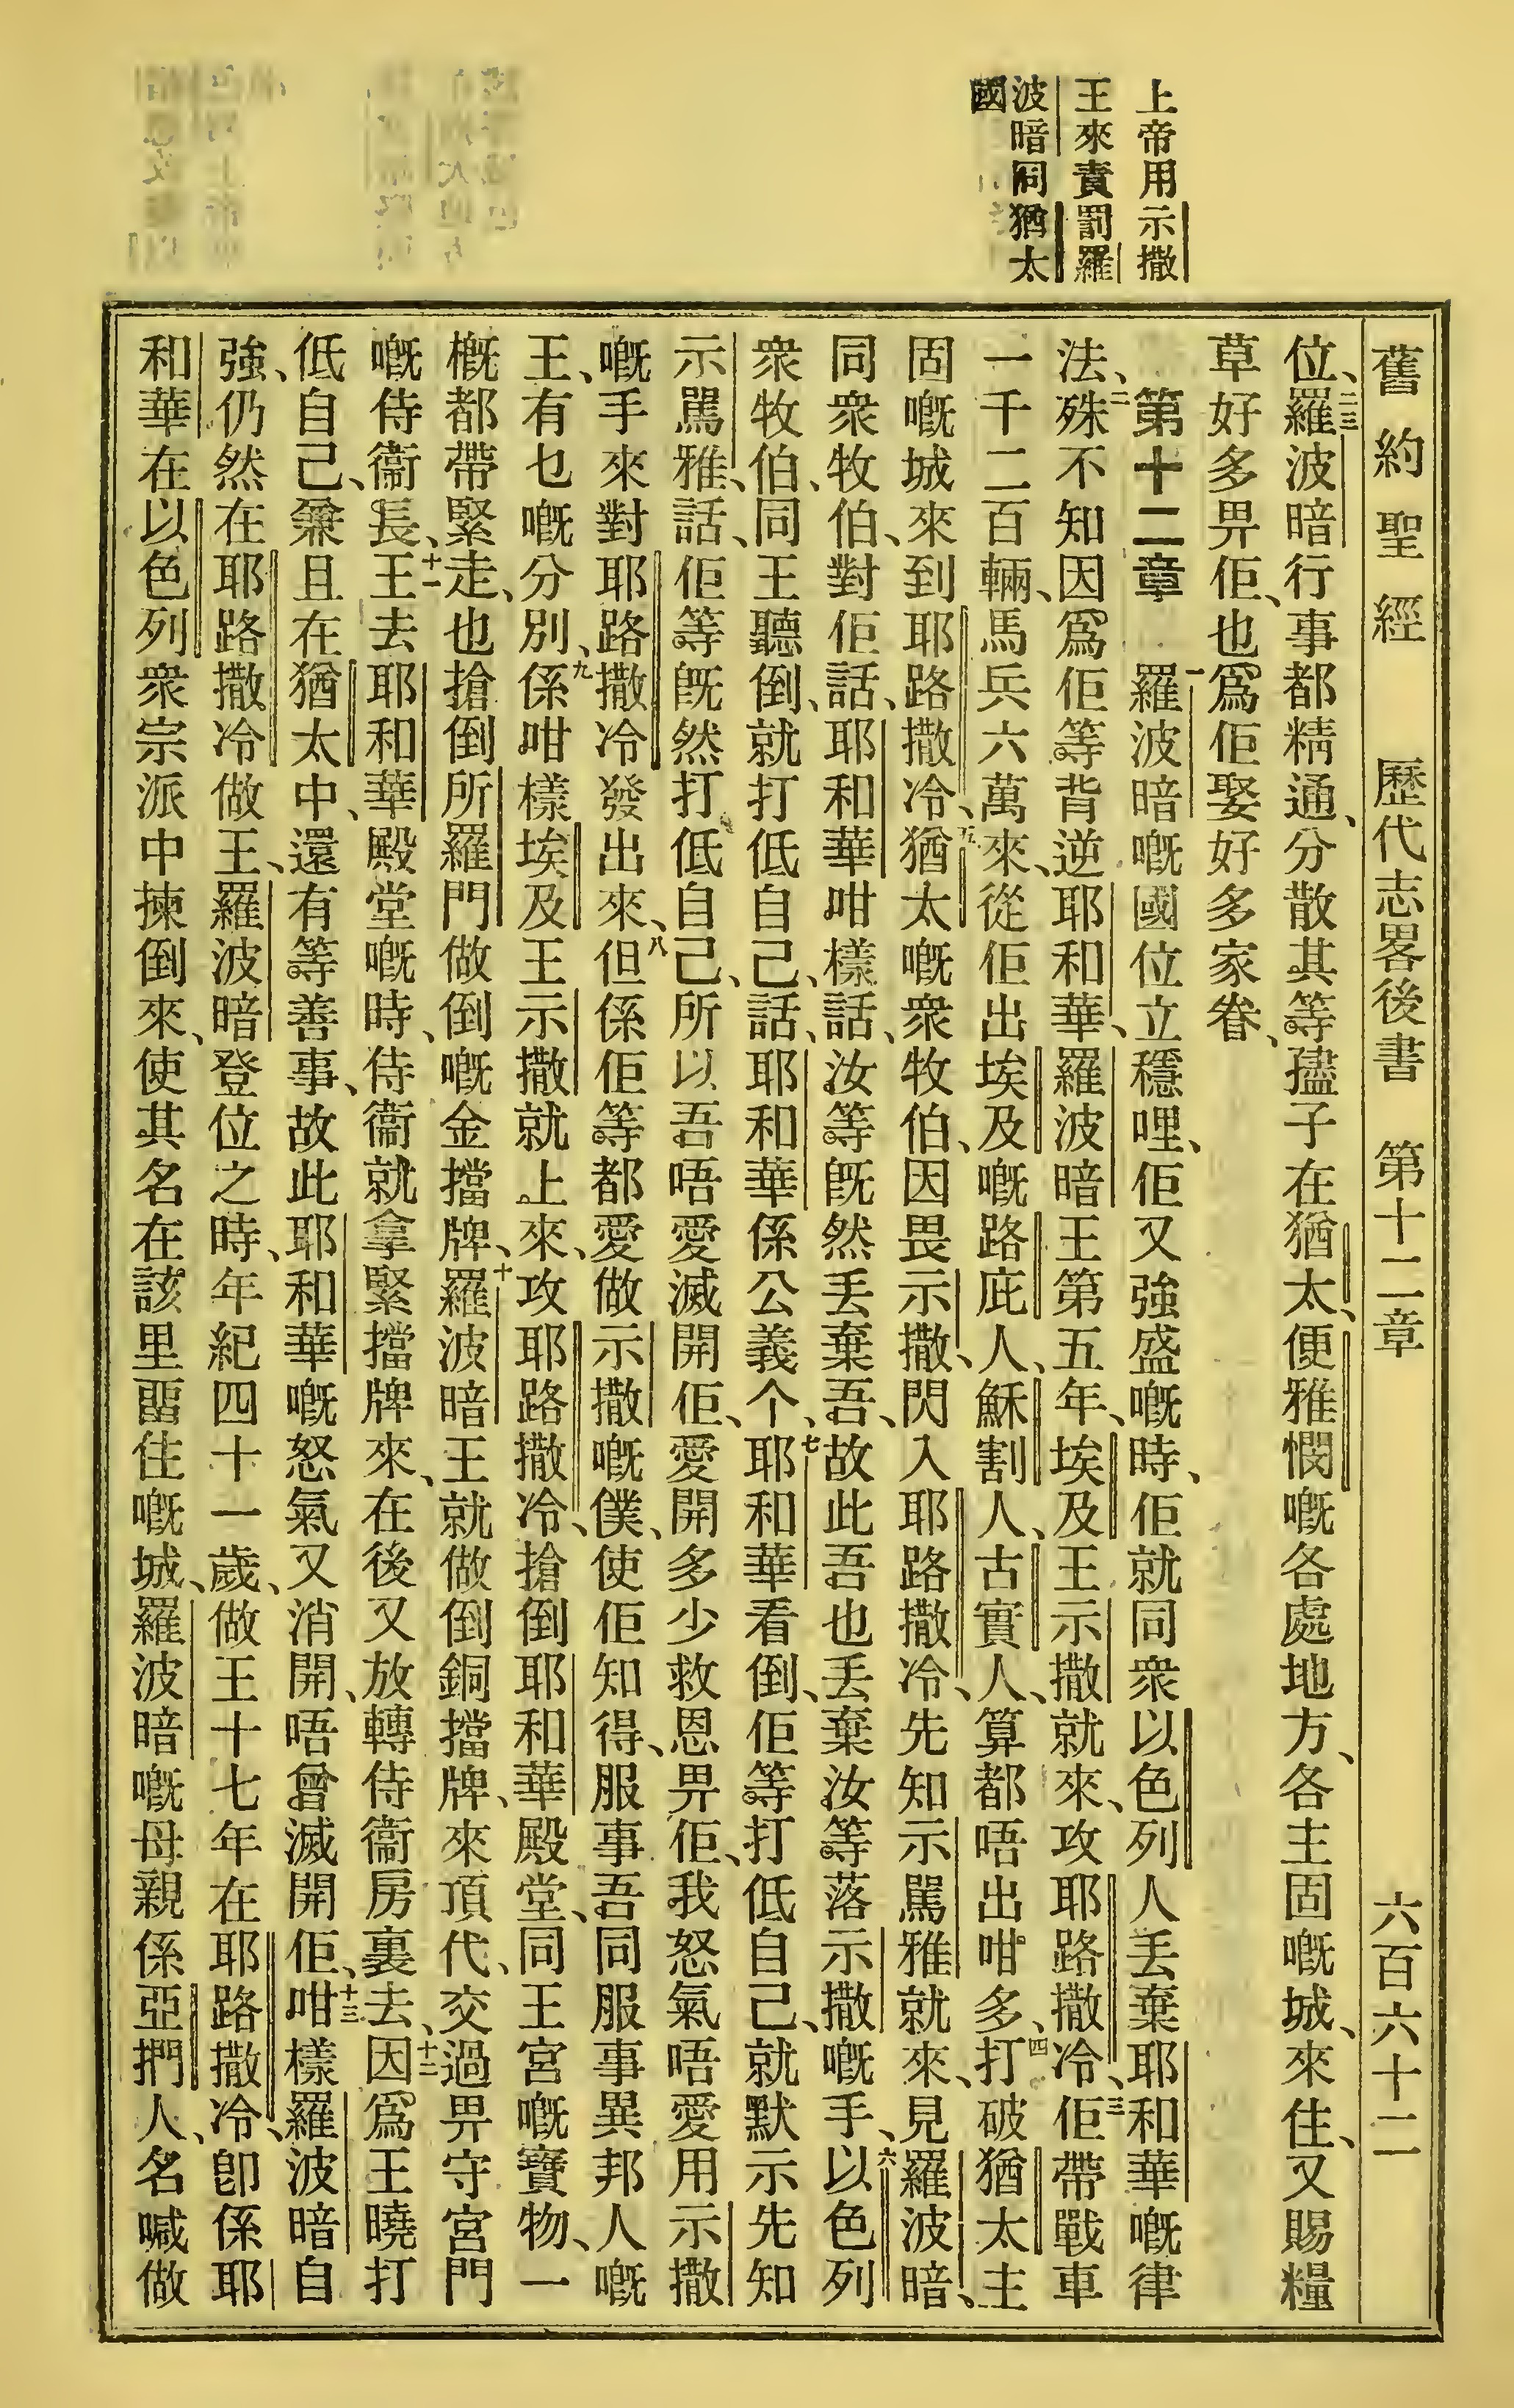 上帝用示撒
王來責罰羅
波暗同猶太
國
舊約聖經 歷代志畧後書 第十二章 六百六十二
位、二三羅波暗行事都精通、分散其等孻子在猶太、便雅憫嘅各處地方、各主固嘅城、來住、又賜糧
草好多畀佢、也爲佢娶好多家眷、
第十二章 一羅波暗嘅國位立穩哩、佢又強盛嘅時、佢就同衆以色列人丟棄耶和華嘅律
法、二殊不知因爲佢等背逆耶和華、羅波暗王第五年、埃及王示撒就來、攻耶路撒冷、三佢帶戰車
一千二百輛、馬兵六萬來、從佢出埃及嘅路庇人、穌割人、古實人、算都唔出咁多、四打破猶太主
固嘅城來到耶路撒冷、五猶太嘅衆牧伯、因畏示撒、閃入耶路撒冷、先知示罵雅就來、見羅波暗、
同衆牧伯、對佢話、耶和華咁樣話、汝等旣然丟棄吾、故此吾也丟棄汝等落示撒嘅手、六以色列
衆牧伯、同王聽倒、就打低自己、話、耶和華係公義个、七耶和華看倒、佢等打低自己、就默示先知
示罵雅、話、佢等旣然打低自己、所以吾唔愛滅開佢、愛開多少救恩畀佢、我怒氣唔愛用示撒
嘅手來對耶路撒冷發出來、八但係佢等都愛做示撒嘅僕、使佢知得、服事吾同服事異邦人嘅
王、有乜嘅分別、九係咁樣埃及王示撒就上來、攻耶路撒冷、搶倒耶和華殿堂、同王宮嘅寶物、一
概都帶緊走、也搶倒所羅門做倒嘅金擋牌、十羅波暗王就做倒銅擋牌、來頂代、交過畀守宮門
嘅侍衞長、十一王去耶和華殿堂嘅時、侍衞就拿緊擋牌來、在後又放轉侍衞房裏去、十二因爲王曉打
低自己、兼且在猶太中、還有等善事、故此耶和華嘅怒氣又消開、唔曾滅開佢、十三咁樣羅波暗自
強、仍然在耶路撒冷做王、羅波暗登位之時、年紀四十一歲、做王十七年在耶路撒冷、卽係耶
和華在以色列衆宗派中揀倒來、使其名在該里畱住嘅城、羅波暗嘅母親係亞捫人、名喊做